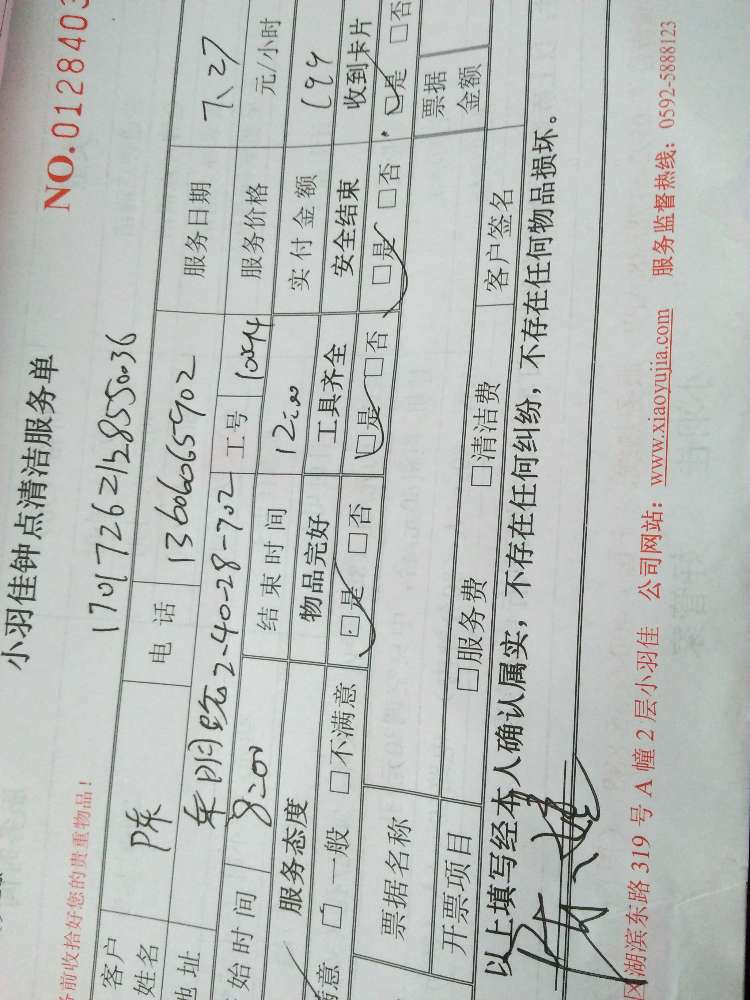 NO.0128403
小羽佳钟点清洁服务单
务前收拾好您的贵重物品！
客户姓名 陈 电话 13606065902 服务日期 7.27
地址 2-40-28-702 工号 服务价格 元/小时
始时间 8:00 结束时间 12:00 实付金额
服务态度 物品完好 工具齐全 安全结束 收到卡片
满意 □一般 □不满意 □是 □否 □是 □否 □是 □否 □是 □否
票据名称 票据金额
开票项目 □服务费 □清洁费 客户签名
以上填写经本人确认属实，不存在任何纠纷，不存在任何物品损坏。
区湖滨东路 319 号 A 幢 2 层小羽佳 公司网站：www.xiaoyujia.com 服务监督热线：0592-5888123